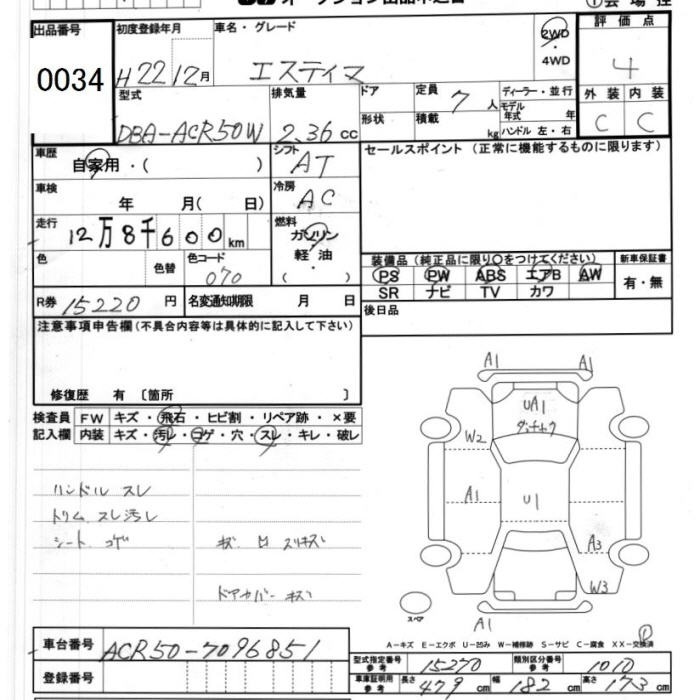 オークション出品申込書
①会場控
出品番号 0034
初度登録年月 H22 12月
車名・グレード エスティマ
2WD・4WD
評価点 4
外装 C 内装 C
型式 DBA-ACR50W
排気量 2.36 cc
ドア
形状
定員 7人
積載 kg
ディーラー・並行
モデル年式 年
ハンドル 左・右
車歴 自家用・( )
シフト AT
セールスポイント(正常に機能するものに限ります)
車検 年 月(日)
冷房 AC
走行 12万8千600km
燃料 ガソリン
軽油
( ・ )
色 色替
色コード 070
装備品(純正品に限り○をつけてください)
PS PW ABS エアB AW
SR ナビ TV カワ
新車保証書
有・無
R券 15220円
名変通知期限 月 日
後日品
注意事項申告欄(不具合内容等は具体的に記入して下さい)
修復歴 有〔箇所 〕
検査員記入欄
FW キズ・飛石・ヒビ割・リペア跡・×要
内装 キズ・汚レ・コゲ・穴・スレ・キレ・破レ
ハンドル スレ
トリム スレ汚レ
シート コゲ
ドアカバー キズ
A1 A1
UA1
W2
A1
U1
A3
W3
A1
スペア
A-キズ E-エクボ U-凹み W-補修跡 S-サビ C-腐食 XX-交換済
車台番号 ACR50-7096851
登録番号
型式指定番号 参考 15270
類別区分番号 参考 1010
車庫証明用 参考 長さ 479cm 幅 182cm 高さ 173cm